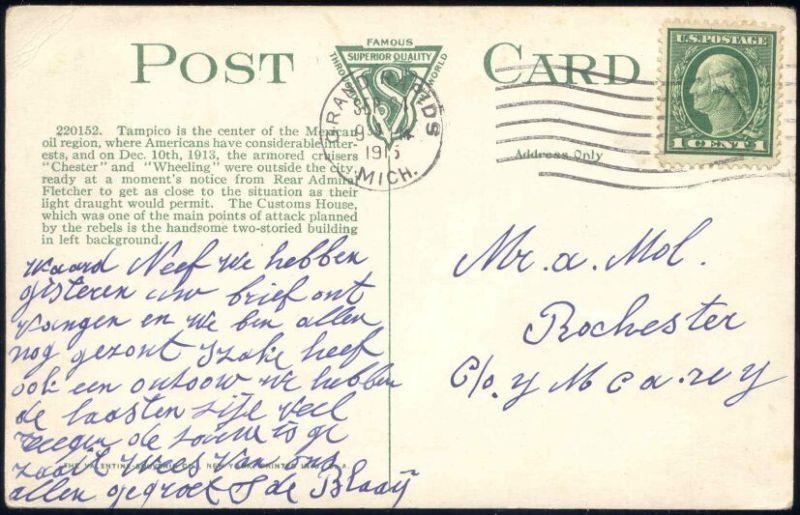 POST CARD
FAMOUS
SUPERIOR QUALITY
THROUGHOUT WORLD
GRAND RAPIDS
SEP
MICH.
U.S. POSTAGE
1 CENT 1
Address Only
220152. Tampico is the center of the Mexican
oil region, where Americans have considerable inter-
ests, and on Dec. 10th, 1913, the armored cruisers
"Chester" and "Wheeling" were outside the city,
ready at a moment's notice from Rear Admiral
Fletcher to get as close to the situation as their
light draught would permit. The Customs House,
which was one of the main points of attack planned
by the rebels is the handsome two-storied building
in left background.
waard Neef We hebben
gisteren uw brief ont
vangen en We ben allen
nog gezont heef
ook een we hebben
de laasten veel
reegen de is ge
zaait Wees van ons
allen gegroet de Blaaij
THE VALENTINE-SOUVENIR CO., NEW YORK. PRINTED IN U.S.A.
Mr. A. Mol.
Rochester
C/o. Y M C A. N Y